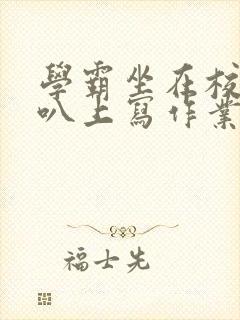 學霸坐在校
叭上寫作業
福士先